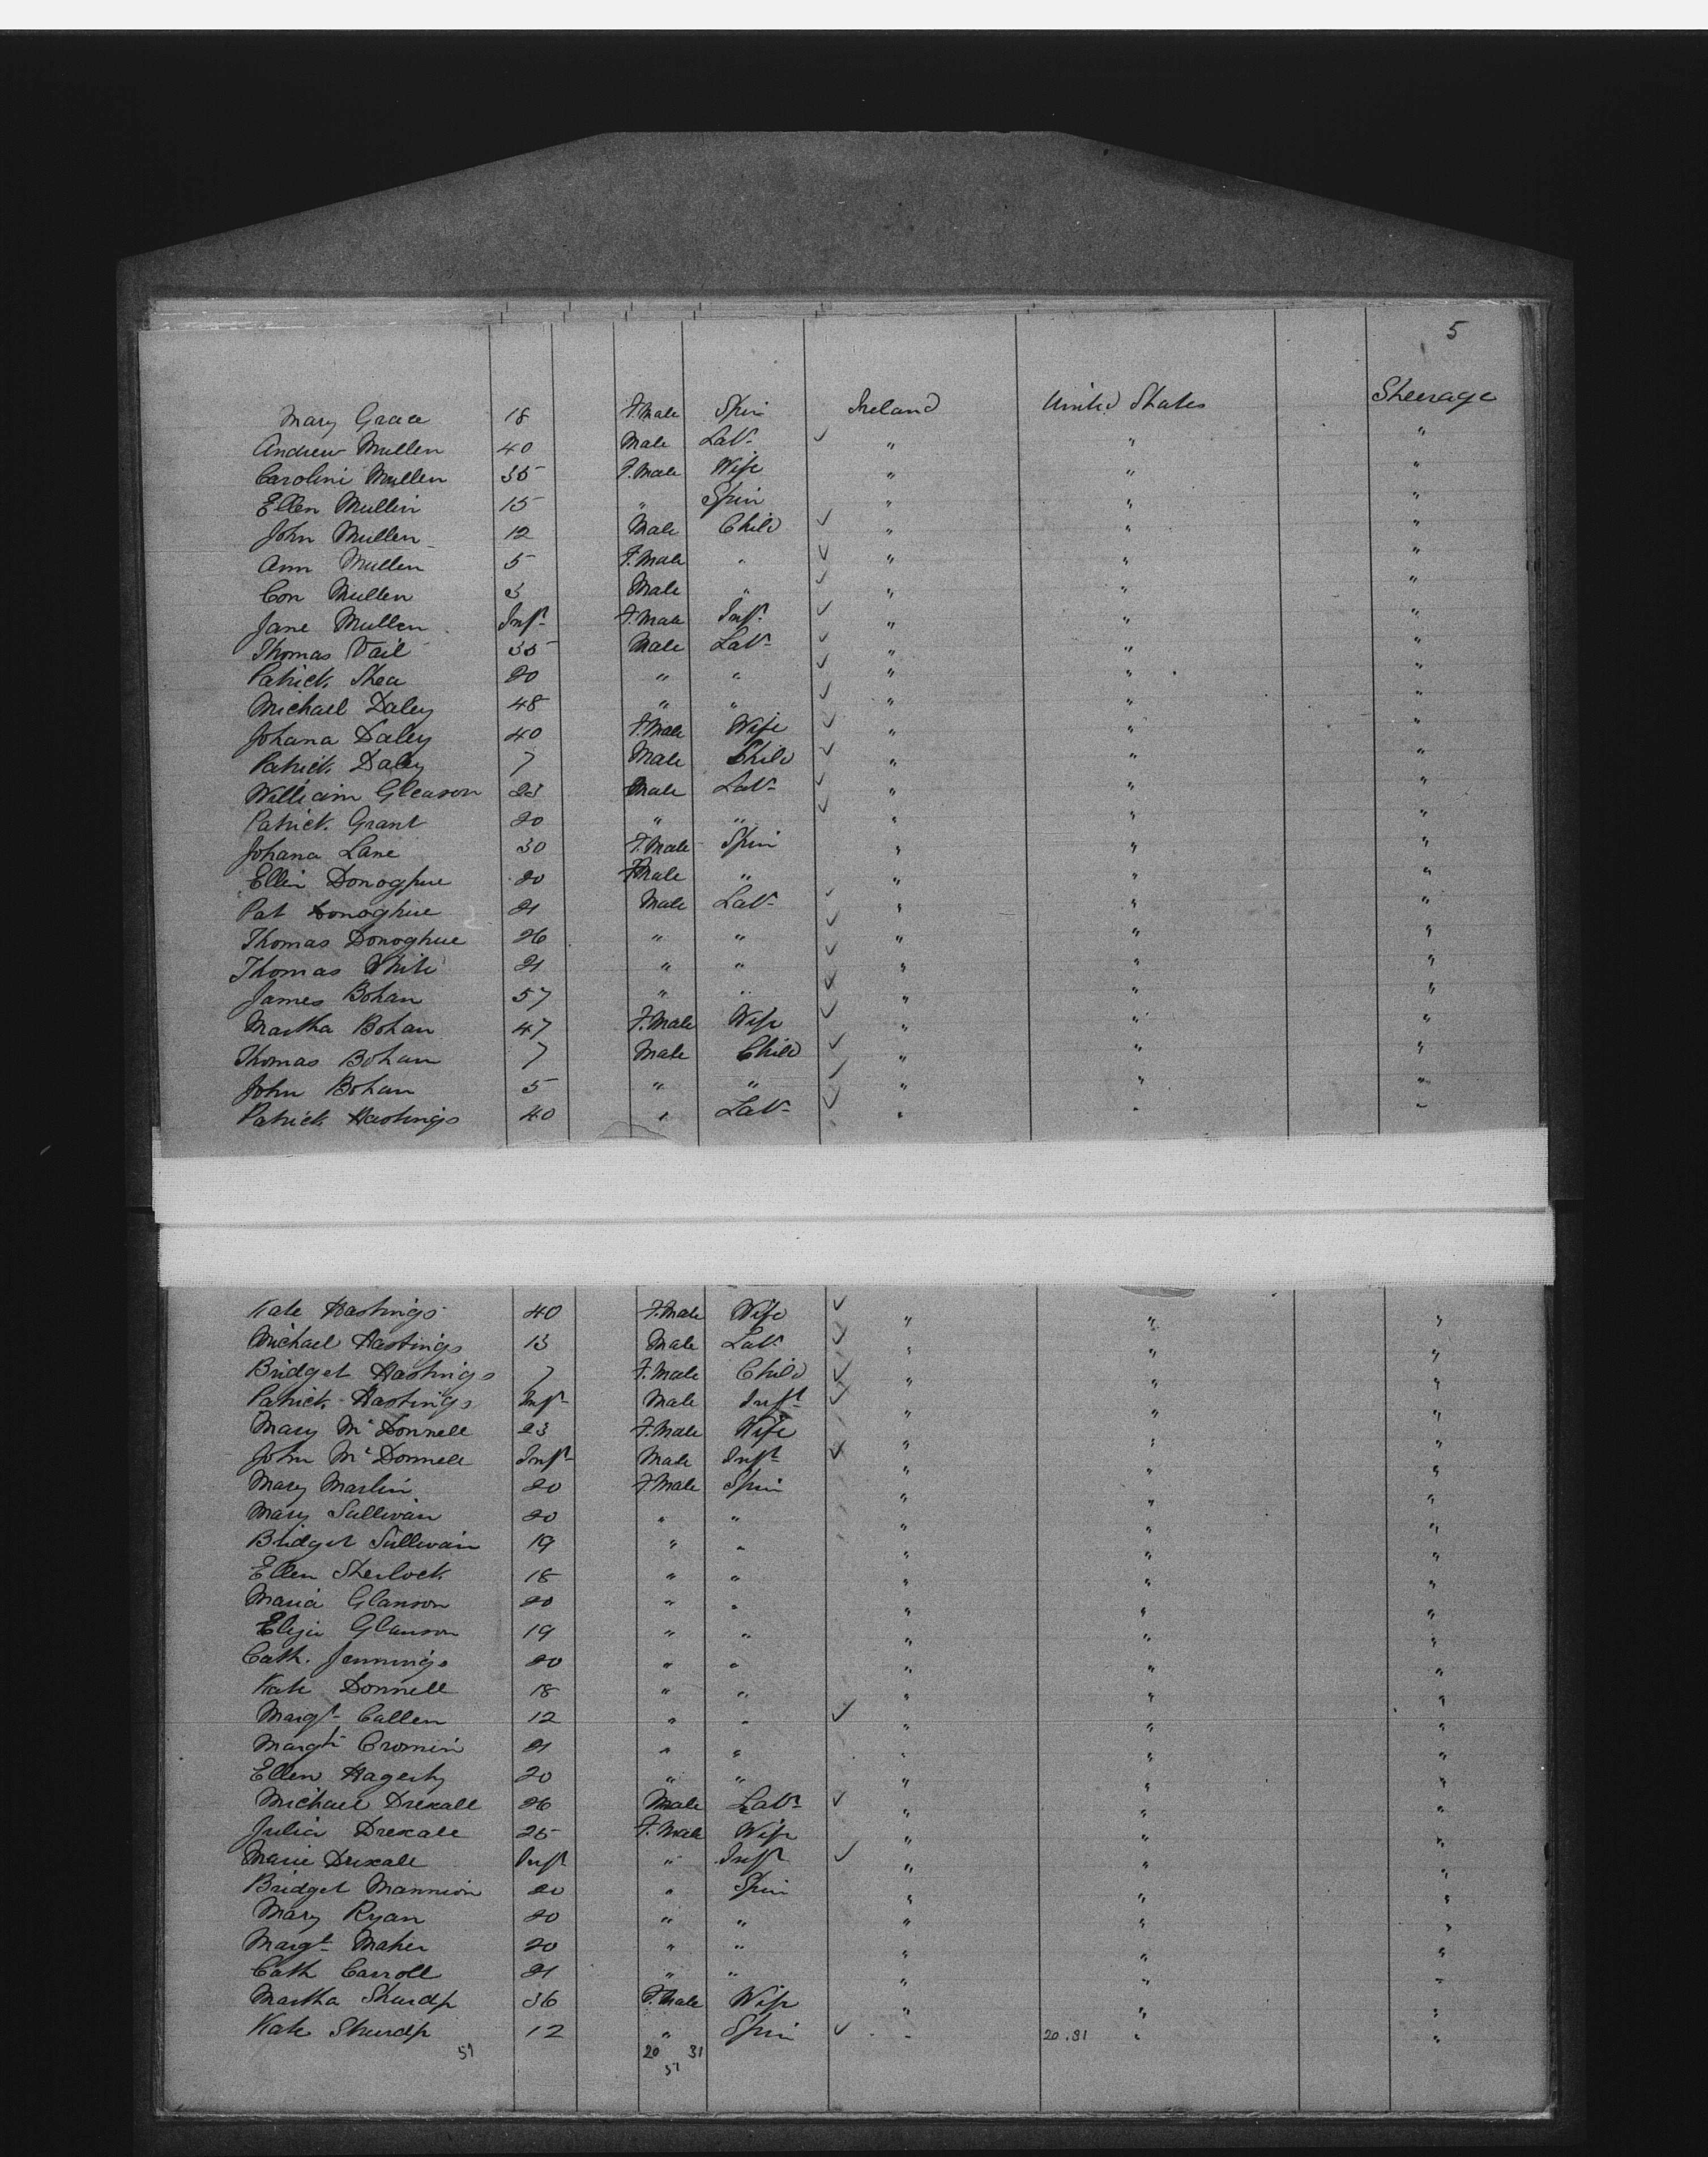 5
Mary Grace 18 F.Male Spin Ireland United States Steerage
Andrew Mullen 40 Male Labr ✓ " " "
Caroline Mullen 35 F.Male Wife " " "
Ellen Mullin 15 " Spin " " "
John Mullen 12 Male Child ✓ " " "
Ann Mullen 5 F.Male " ✓ " " "
Con Mullen 3 Male " ✓ " " "
Jane Mullen Inft F.Male Inft ✓ " " "
Thomas Vail 35 Male Labr ✓ " " "
Patrick Shea 20 " " ✓ " " "
Michael Daley 48 " " ✓ " " "
Johana Daley 40 F.Male Wife ✓ " " "
Patrick Daley 7 Male Child ✓ " " "
William Gleason 23 Male Labr ✓ " " "
Patrick Grant 20 " " ✓ " " "
Johana Lane 30 F.Male Spin " " "
Ellin Donoghue 20 FMale " " " "
Pat Donoghue 21 Male Labr ✓ " " "
Thomas Donoghue 26 " " ✓ " " "
Thomas White 21 " " ✓ " " "
James Bohan 57 " " ✓ " " "
Martha Bohan 47 F.Male Wife ✓ " " "
Thomas Bohan 7 Male Child ✓ " " "
John Bohan 5 " " ✓ " " "
Patrick Hastings 40 " Labr ✓ " " "
Kate Hastings 40 F.Male Wife ✓ " " "
Michael Hastings 13 Male Labr ✓ " " "
Bridget Hastings 7 F.Male Child ✓ " " "
Patrick Hastings Inft Male Inft ✓ " " "
Mary McDonnell 23 F.Male Wife " " "
John McDonnell Inft Male Inft ✓ " " "
Mary Martin 20 F.Male Spin " " "
Mary Sullivan 20 " " " " "
Bridget Sullivan 19 " " " " "
Ellen Sherlock 18 " " " " "
Maria Glanson 20 " " " " "
Eliza Glanson 19 " " " " "
Cath. Jennings 20 " " " " "
Kate Donnell 18 " " " " "
Margt Callen 12 " " ✓ " " "
Margt Cromin 21 " " " " "
Ellen Hagerty 20 " " " " "
Michael Drexall 26 Male Labr ✓ " " "
Julia Drexall 25 F.Male Wife " " "
Marie Drexall Inft " Inft ✓ " " "
Bridget Mannion 20 " Spin " " "
Mary Ryan 20 " " " " "
Margt Maher 20 " " " " "
Cath Carroll 21 " " " " "
Martha 36 F.Male Wife " " "
Kate 12 " Spin ✓ " 20.31 " "
51 20 31
51